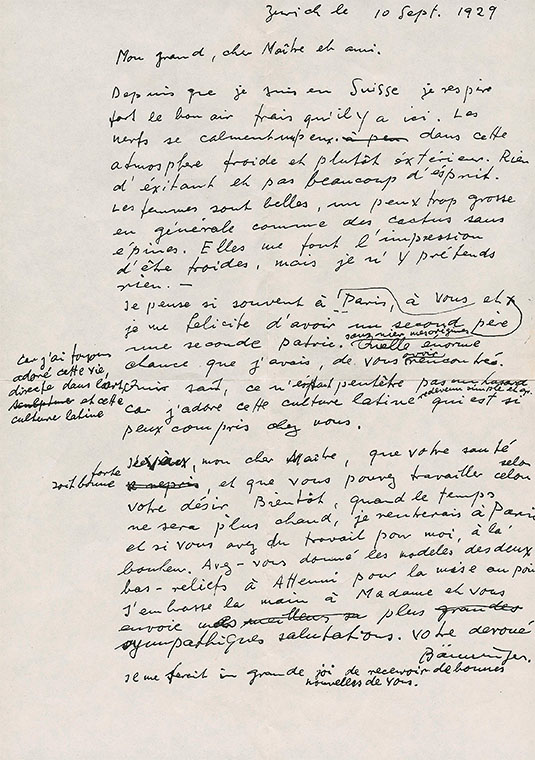 Zurich le 10 Sept. 1929
Mon grand, cher Maître et ami.
Depuis que je suis en Suisse je respire
fort le bon air frais qu'il y a ici. Les
nerfs se calment un peux. à peu dans cette
atmosphere froide et plutôt éxtérieur. Rien
d'éxitant et pas beaucoup d'ésprit.
Les femmes sont belles, un peux trop grosse
en générale comme des cactus sans
épines. Elles me font l'impression
d'être froides, mais je n'y prétends
rien. —
Je pense si souvent à Paris, à vous et
je me felicite d'avoir un second père
une seconde patrie.
Quelle enorme
chance que j'avais, de vous rencontrés.
car j'ai toujours
adoré cette vie,
directe dans l'art
sculpteur et cette
culture latine
sait, ce n'était peutêtre pas un hasard
car j'adore cette culture latine qui est si
peux compris chez vous.
mon cher Maître, que votre santé
forte
soit bonne et que vous pouvez travailler selon
votre désir. Bientôt, quand le temps
ne sera plus chaud, je renterais à Paris
et si vous avez du travail pour moi, à la
bonheur. Avez-vous donné les modèles des deux
bas-reliefs à Attenni pour la mise au poin
J'embrasse la main à Madame et vous
envoie mes meilleurs plus grandes
sympathiques salutations. Votre devoué
Bänninger.
Il me ferait un grande joi de recevoir de bonnes
nouvelles de vous.